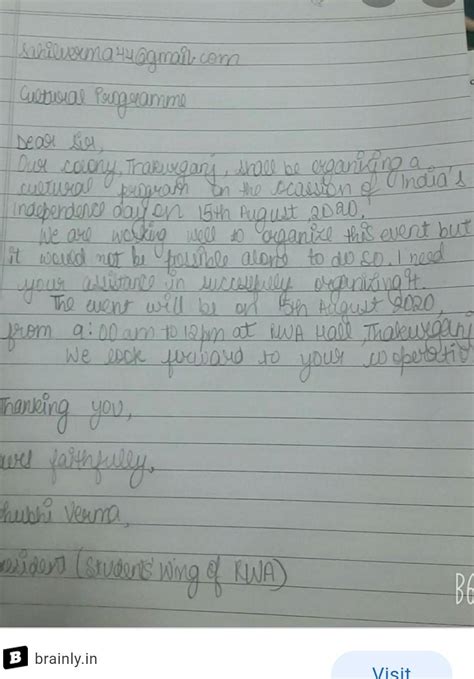 sahilverma44@gmail.com
Cultural Programme
Dear Sir,
Our colony, Thakurganj, shall be organizing a
cultural program on the occassion of India's
independence day on 15th August 2020.
We are working well to organize this event but
it would not be possible alone to do so. I need
your assistance in successfully organizing it.
The event will be on 15th August 2020,
from 9:00 am to 12pm at RWA Hall, Thakurganj
We look forward to your cooperatio
Thanking you,
ours faithfully,
hubhi Verma,
resident (Students' Wing of RWA)
brainly.in
Visit